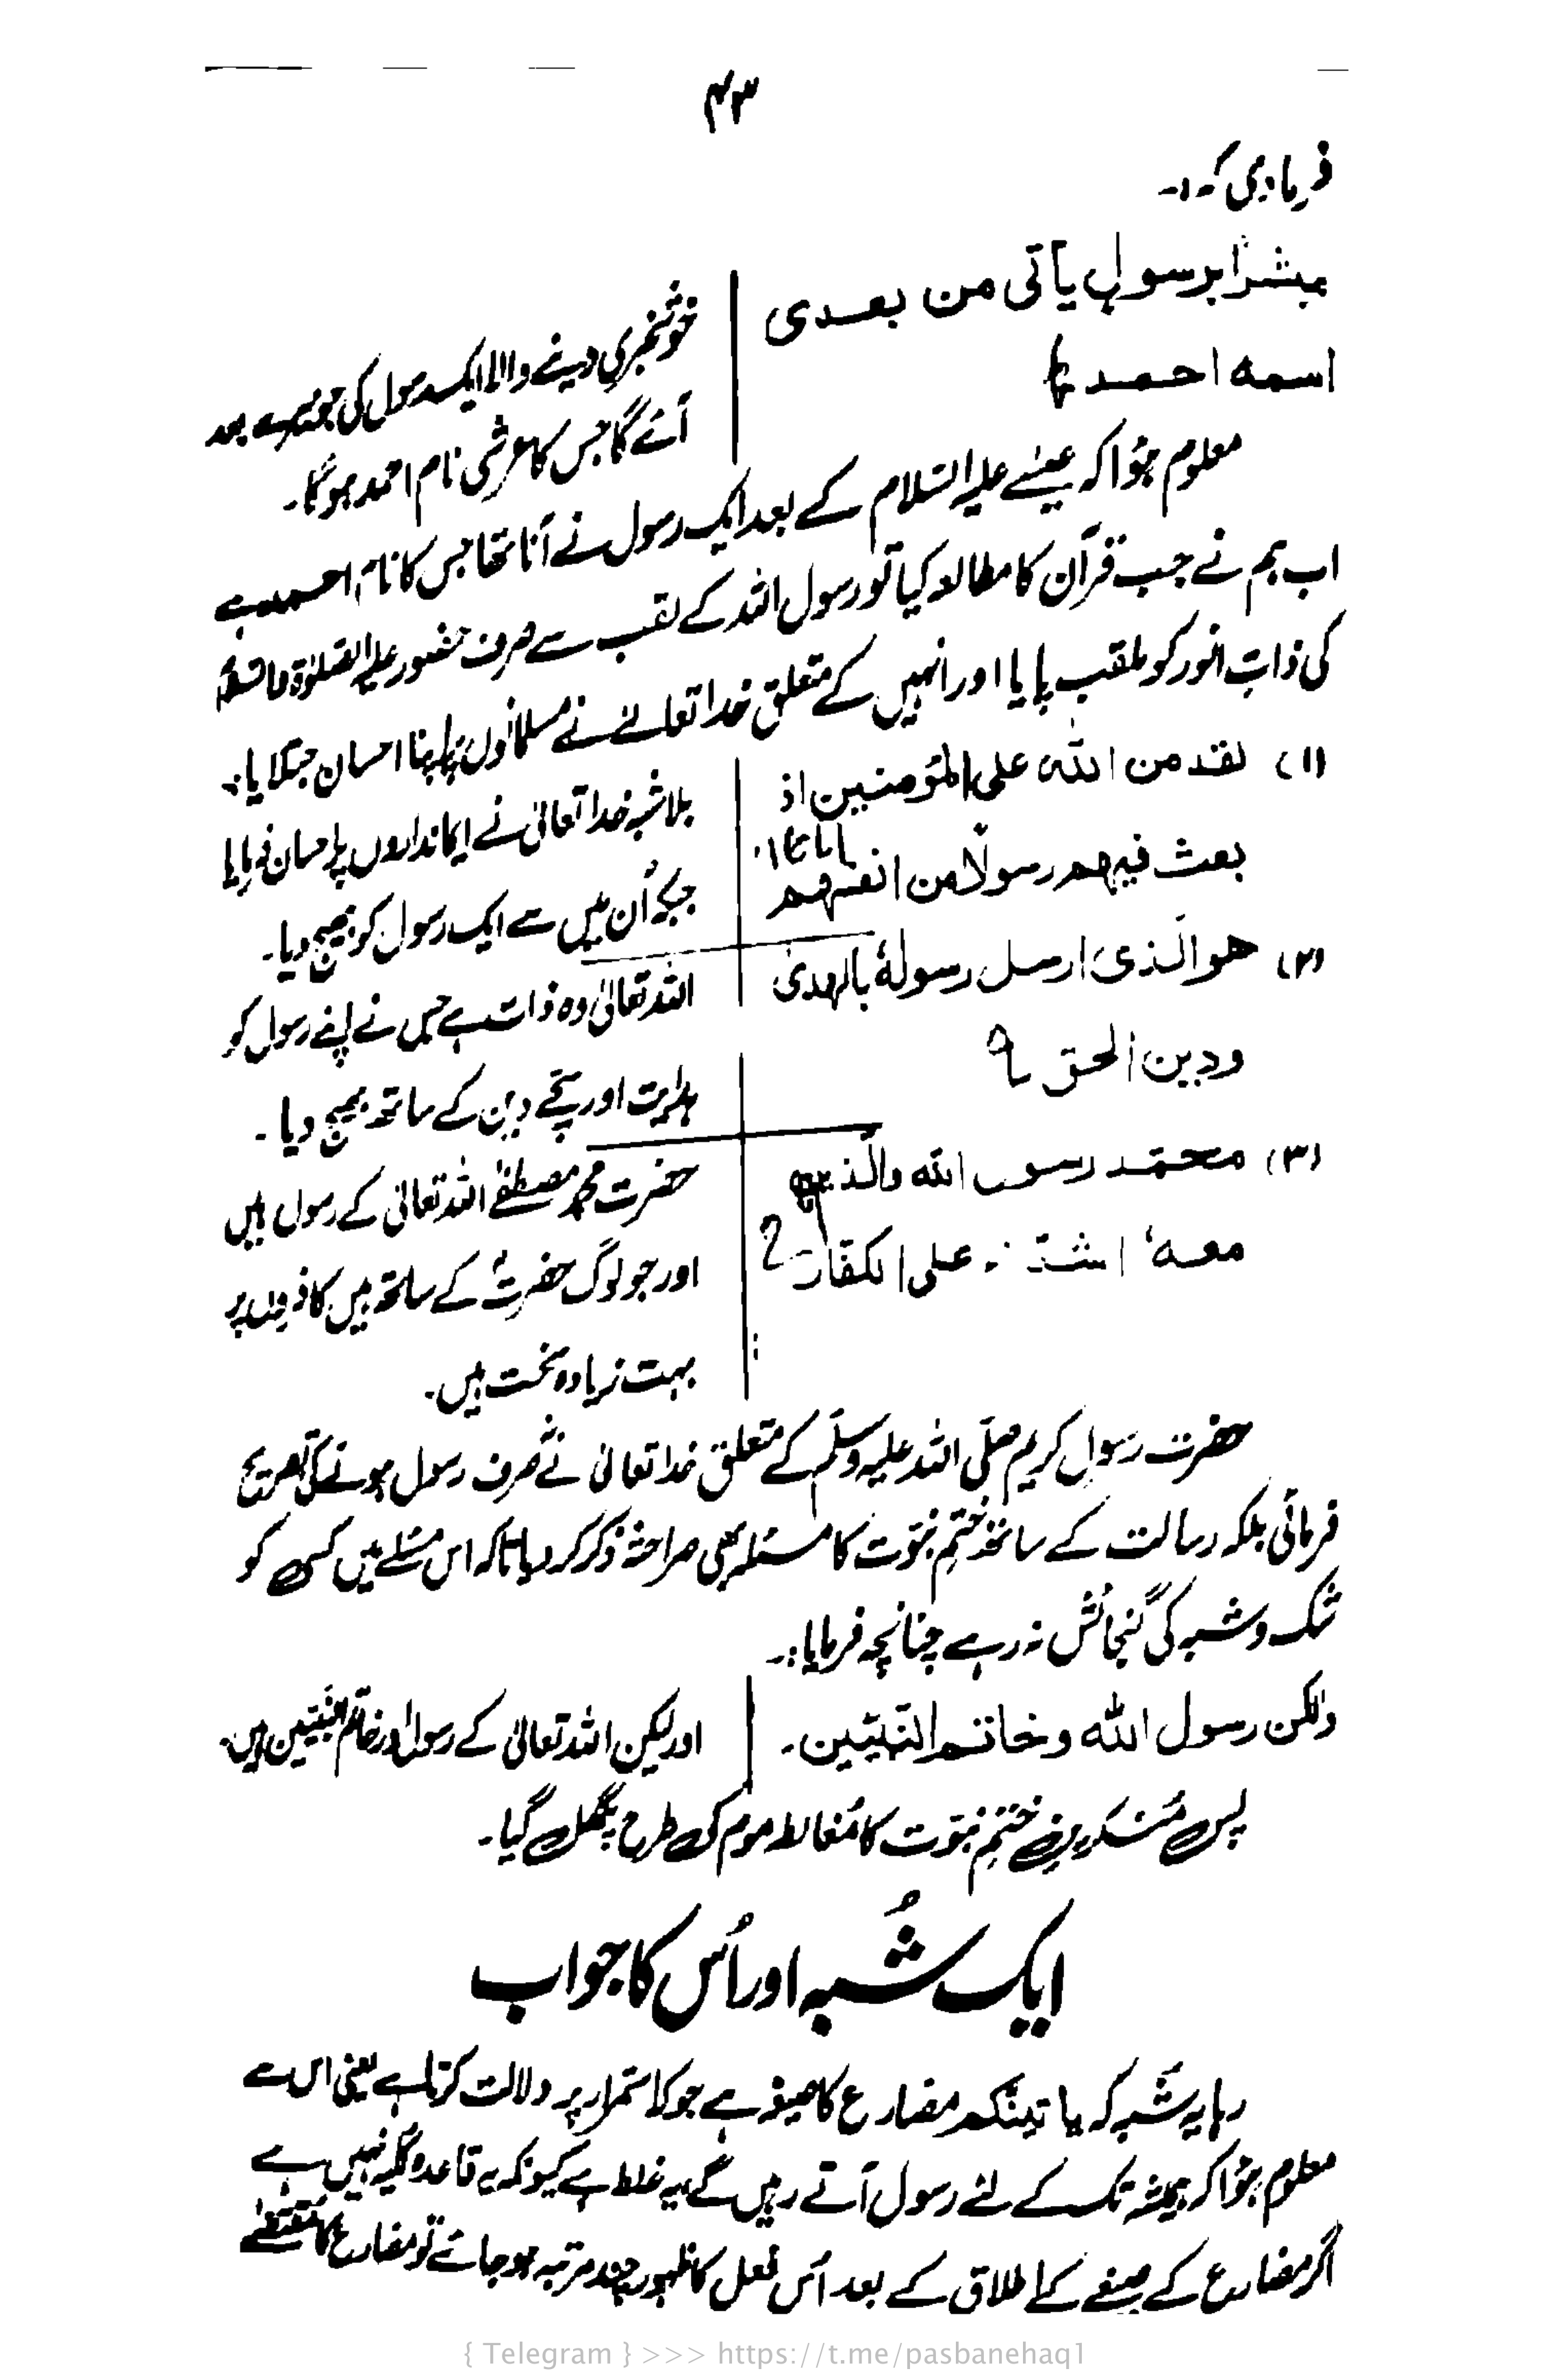 ۴۳
فرما دی کہ :۔
مبشرًا برسول یأتی من بعدی
اسمه احمد
خوشخبری دینے والا ایک رسول کی جو میرے بعد
آئے گا جس کا عرشی نام احمد ہوگا۔
معلوم ہؤا کہ عیسٰے علیہ السّلام کے بعد ایک رسول نے آنا تھا جس کا نام احمد ہے
اب ہم نے جب قرآن کا مطالعہ کیا تو رسول اللہ کے لقب سے صرف حضور علیہ الصلوٰۃ والسلام
کی ذاتِ انور کو ملقب پایا اور انہیں کے متعلق خدا تعالےٰ نے مسلمانوں پر اپنا احسان جتلایا :۔
(۱) لقد من الله علی المؤمنین اذ
بعث فیهم رسولًا من انفسهم
بلاشبہ خدا تعالیٰ نے ایمانداروں پر احسان فرمایا
جبکہ اُن میں سے ایک رسول کو بھیج دیا۔
(۲) هو الذی ارسل رسولهٗ بالهدیٰ
ودین الحق
اللہ تعالیٰ وہ ذات ہے جس نے اپنے رسول کو
ہدایت اور سچّے دین کے ساتھ بھیج دیا۔
(۳) محمّد رسول الله والذین
معهٗ اشدّ علی الکفّار
حضرت محمد مصطفےٰ اللہ تعالیٰ کے رسول ہیں
اور جو لوگ حضرتؐ کے ساتھ ہیں کافروں پر
بہت زیادہ سخت ہیں۔
حضرت رسولِ کریم صلّی اللہ علیہ وسلّم کے متعلق خدا تعالیٰ نے صرف رسول ہونے کی تصریح
فرمائی بلکہ رسالت کے ساتھ ختمِ نبوّت کا مسئلہ بھی صراحۃً ذکر کر دیا تاکہ اس مسٔلے میں کسی کو
شک و شبہ کی گنجائش نہ رہے چنانچہ فرمایا :۔
ولٰکن رسول الله وخاتم النّبیّین۔
اور لیکن اللہ تعالیٰ کے رسول اور خاتم النبیّین ہیں۔
پس مُنکرینِ ختمِ نبوّت کا مُغالطہ موم کی طرح پگھل گیا۔
ایک شُبہ اور اُس کا جواب
رہا یہ شُبہ کہ یاتینکم مضارع کا صیغہ ہے جو کہ استمرار پر دلالت کرتا ہے یعنی اس سے
معلوم ہؤا کہ ہمیشہ تک کے لئے رسول آتے رہیں گے یہ غلط ہے کیونکہ یہ قاعدہ کلّیہ نہیں ہے
اگر مضارع کے صیغے کے اطلاق کے بعد اُس فعل کا ظہور چند مرتبہ ہو جائے تو مضارع کا مقتضٰے
{ Telegram } >>> https://t.me/pasbanehaq1